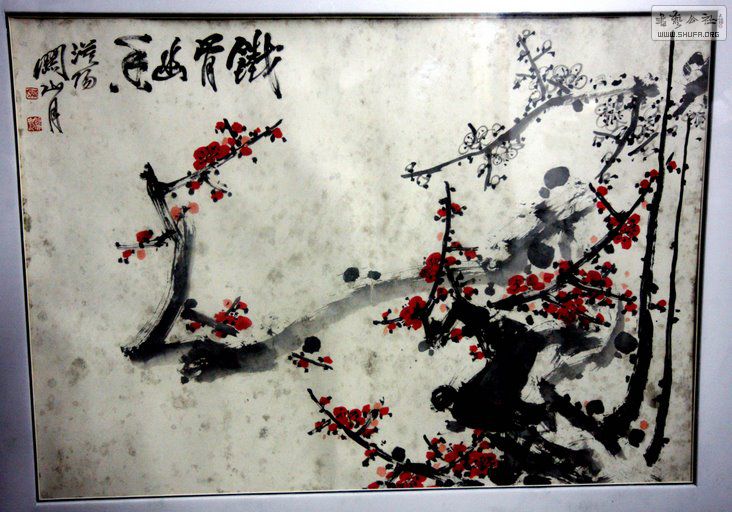 鐵骨幽香
漠陽
關山月
書藝公社
WWW.SHUFA.ORG